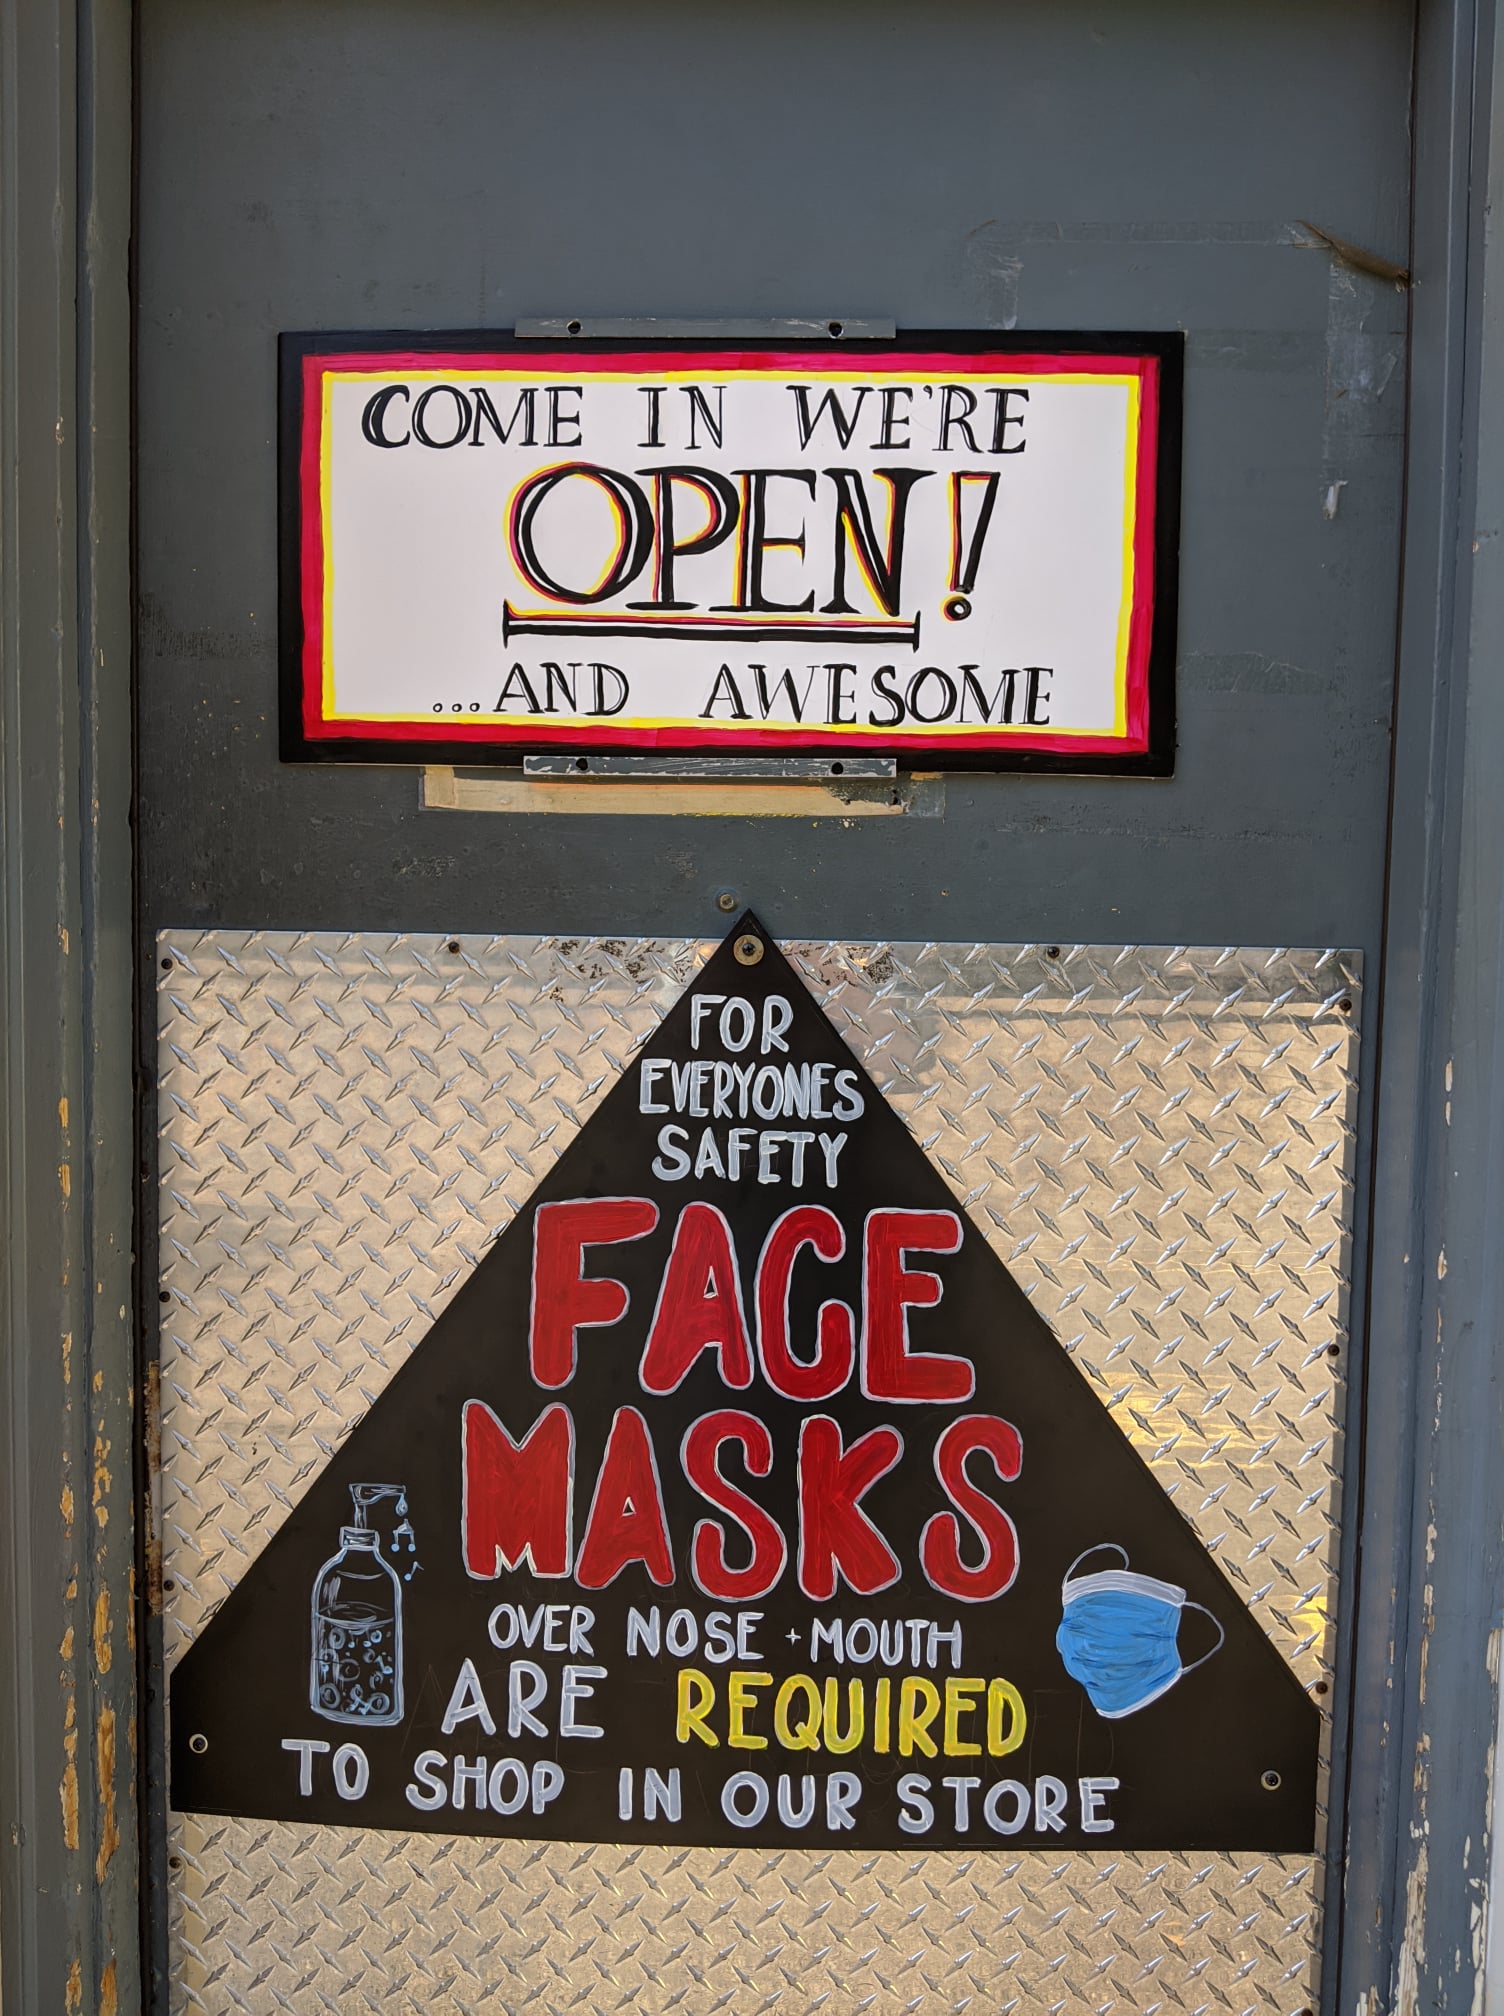 COME IN WE'RE
OPEN!
...AND AWESOME
FOR
EVERYONES
SAFETY
FACE
MASKS
OVER NOSE + MOUTH
ARE REQUIRED
TO SHOP IN OUR STORE